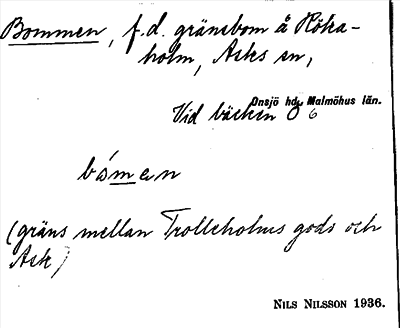 Bommen, f.d. gränsbom å Röka-
holm, Asks sn,
Onsjö hd, Malmöhus län.
Vid bäcken Ö 6
bómen
(gräns mellan Trolleholms gods och
Ask)
NILS NILSSON 1936.